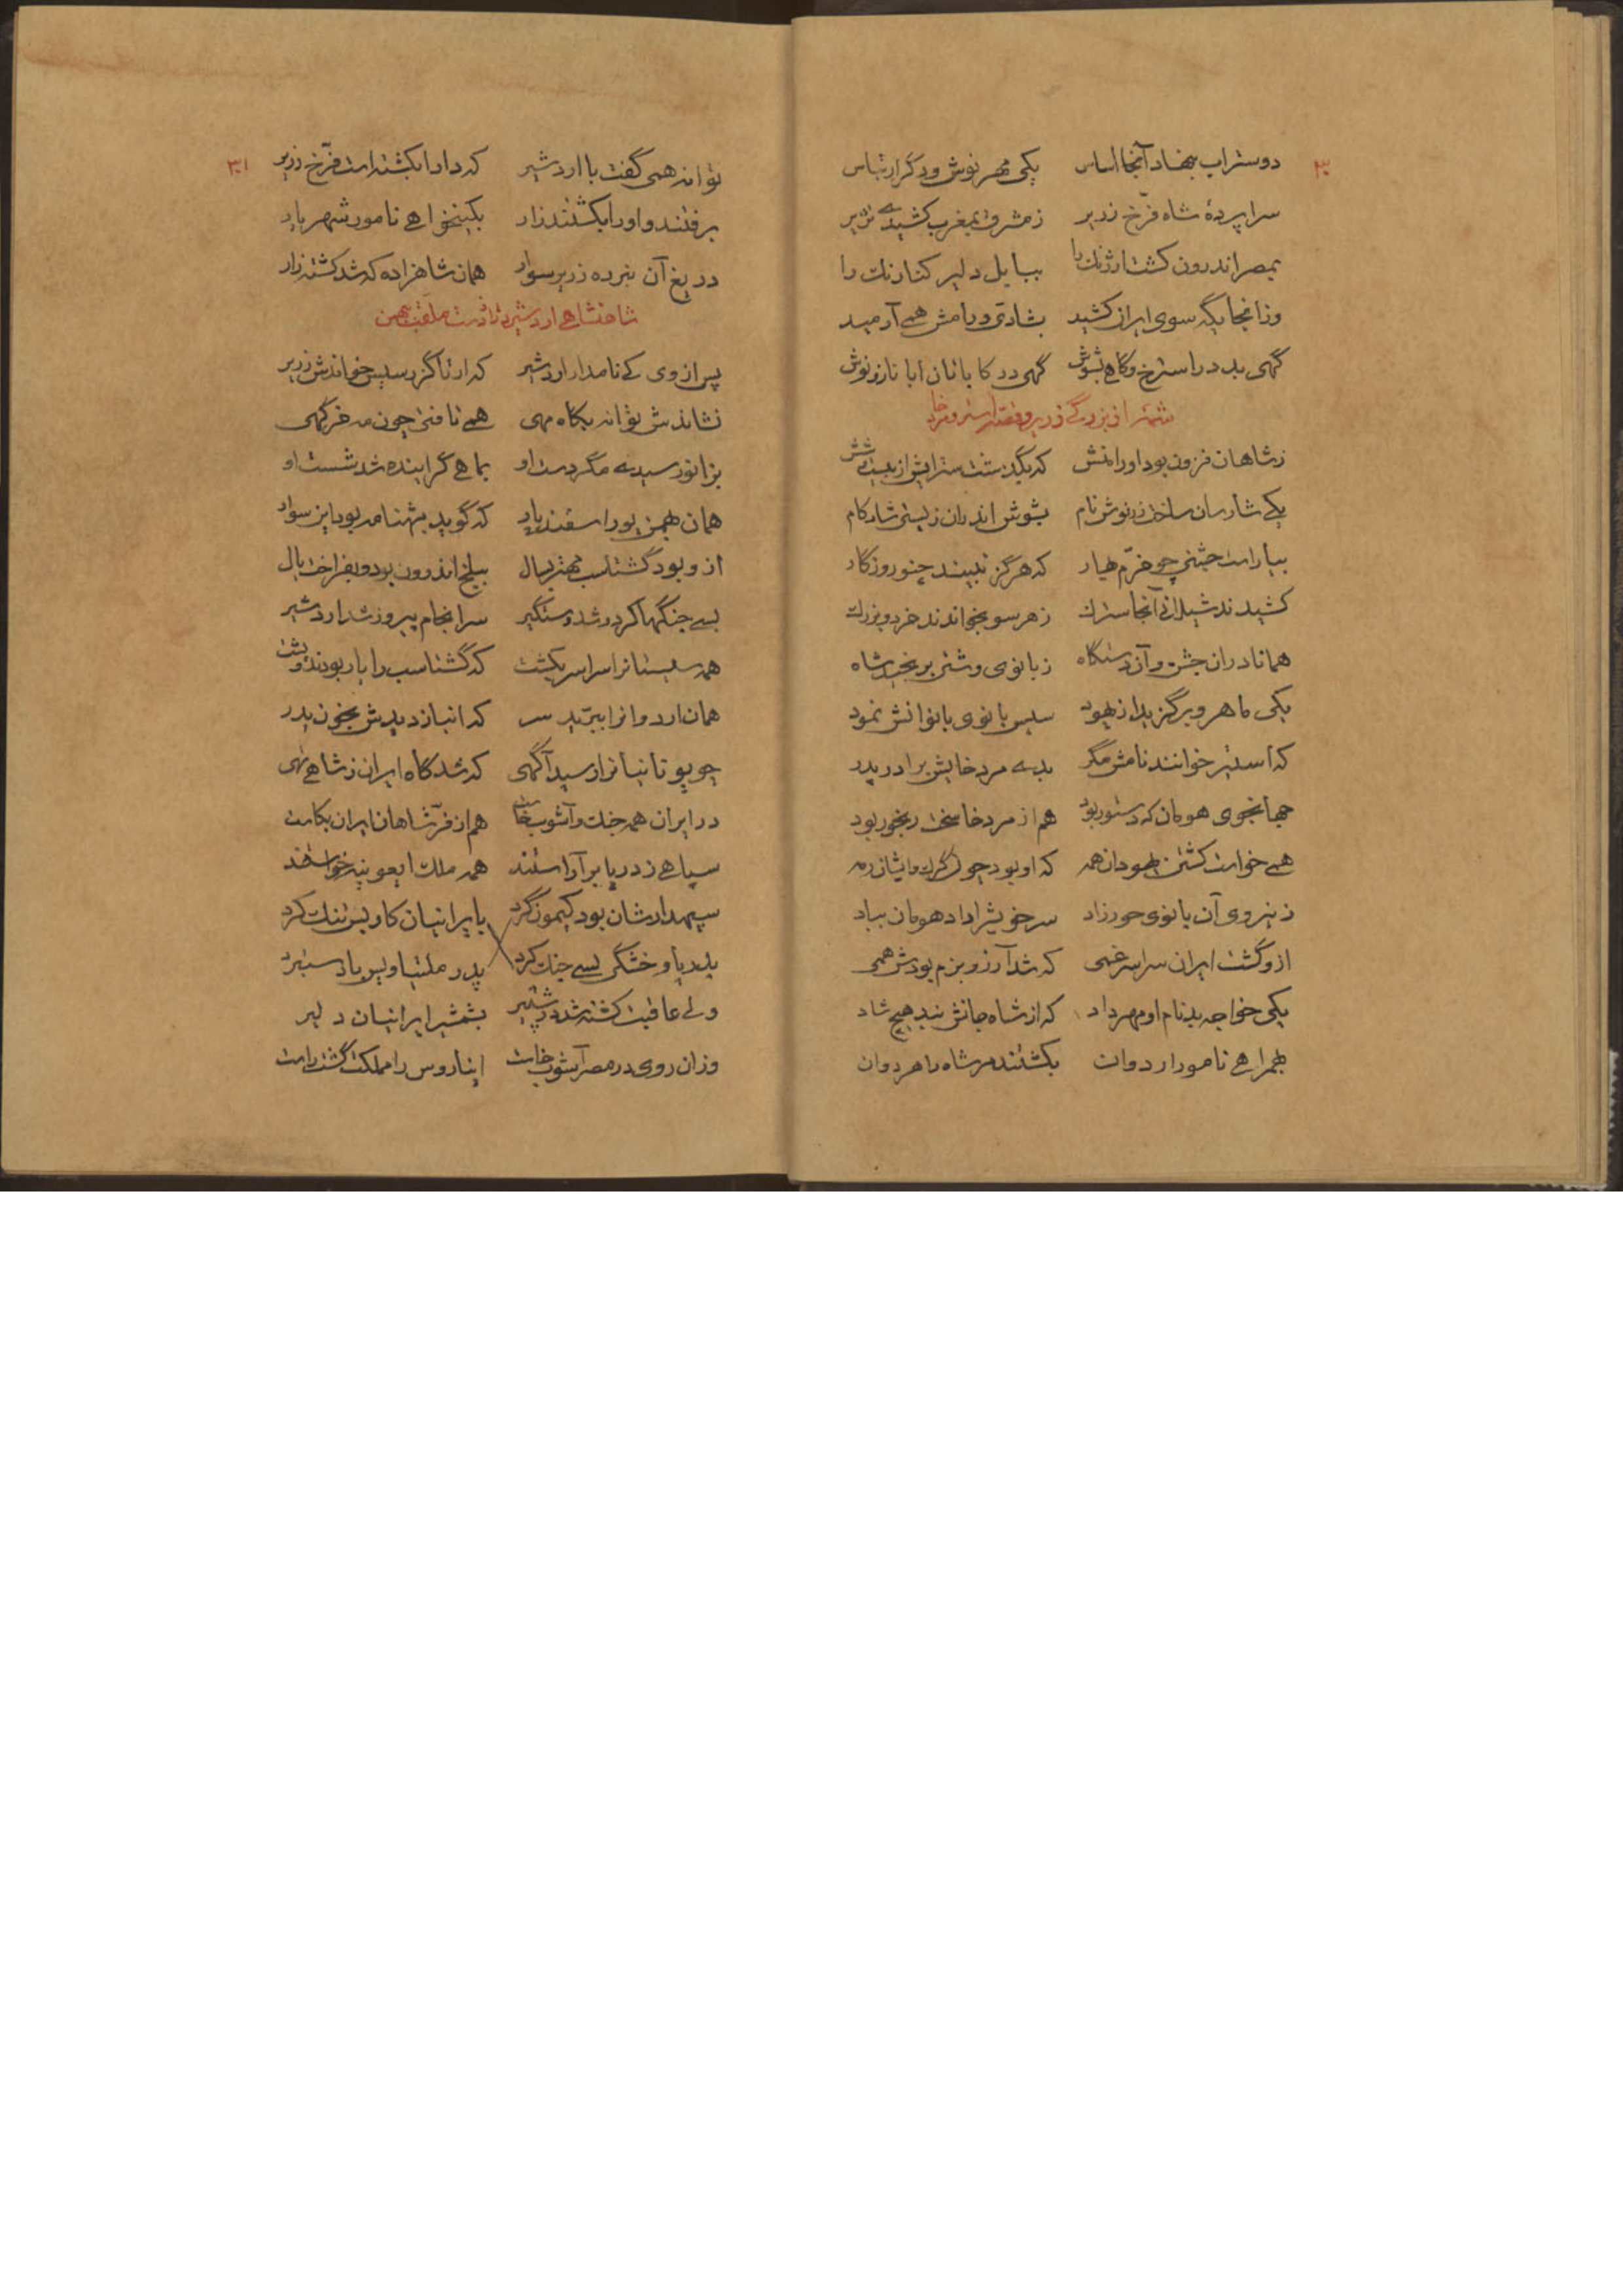 ۳۰
دوستراپ بنهاد آنجا اساس یکی مهرنوش و دگر ارتباس
سراپردهٔ شاه فرّخ زریر ز مشرق بمغرب کشیدی
بمصر اندرون کشت ارژنگ را ببابل دلیر کنارنگ را
وزانجایگه سوی ایران کشید بشادی و رامش همی آرمید
گهی بد در استرخ و گاهی بشوش گهی در کابانان ابا ناز و نوش
شمّهٔ از بزرگی زریر و قصّهٔ استر و مردخا
ز شاهان فزون بود او را منش که بگذشت ستراپش از بیست و شش
یکی شارسان ساخت زرنوش نام بشوش اندران زیستی شادکام
بیاراست جشنی چو خرّم بهار که هرگز نبیند چنو روزگار
کشیدند شیلانی آنجا سترگ ز هر سو بخواندند خرد و بزرگ
همانا در ان جشن و آن دستگاه ز بانوی وشتی برنجید شاه
یکی ماهرو برگزید از یهود سپس بانوی بانوانش نمود
که استیر خوانند نامش مگر بدی مردخایش برادر پدر
جهانجوی هومان که دستور بود هم از مردخا سخت رنجور بود
همی خواست کشتن یهودان همه که او بود چون گرگ و ایشان رمه
ز نیروی آن بانوی حورزاد سر خویش را داد هومان بباد
ازو گشت ایران سراسر غمی که شد آرزو بزم بودش همی
یکی خواجه بد نام او مهرداد که از شاه جانش نبد هیچ شاد
بهمراهی نامور اردوان بکشتند مر شاه را هر دوان
۳۱
نوانه همی گفت با اردشیر که دارا بکشته است فرّخ زریر
برفتند و او را بکشتند زار بکینخواهی نامور شهریار
دریغ آن نبرده زریر سوار همان شاهزاده که شد کشته زار
شاهنشاهی اردشیر درازدست ملقب ببهمن
پس از وی کی نامدار اردشیر که ارتاگزرسیس خواندش زریر
نشاندش نوانه بگاه مهی همی تافتی چون مه خرگهی
بزانو رسیدی مگر دست او بماهی گراینده شد شست او
همان بهمن پور اسفندیار که گوید بشهنامه بود این سوار
ازو بود گشتاسب مهتر بسال ببلخ اندرون بود و بفراخت یال
بسی جنگها کرد و شد دستگیر سرانجام پیروز شد اردشیر
همه سیستانرا سراسر بکشت که گشتاسب را یار بودند و پشت
همان اردوانرا ببرّید سر که انباز دیدش بخون پدر
چو یوتانیانرا رسید آگهی که شد گاه ایران ز شاهی تهی
در ایران همه جنگ و آشوب خاست هم از فرّ شاهان ایران بکاست
سپاهی ز دریا برآراستند همه ملک خواستند
سپهدارشان بود کیمون گرد بایرانیان کار بس تنگ کرد
بدریا و خشکی بسی جنگ کرد پدر ملتیاویس باد ستبرد
ولی عاقبت کشته شد بشمشیر ایرانیان دلیر
وزان روی در مصر آشوب خاست ایناروس را مملکت گشت راست